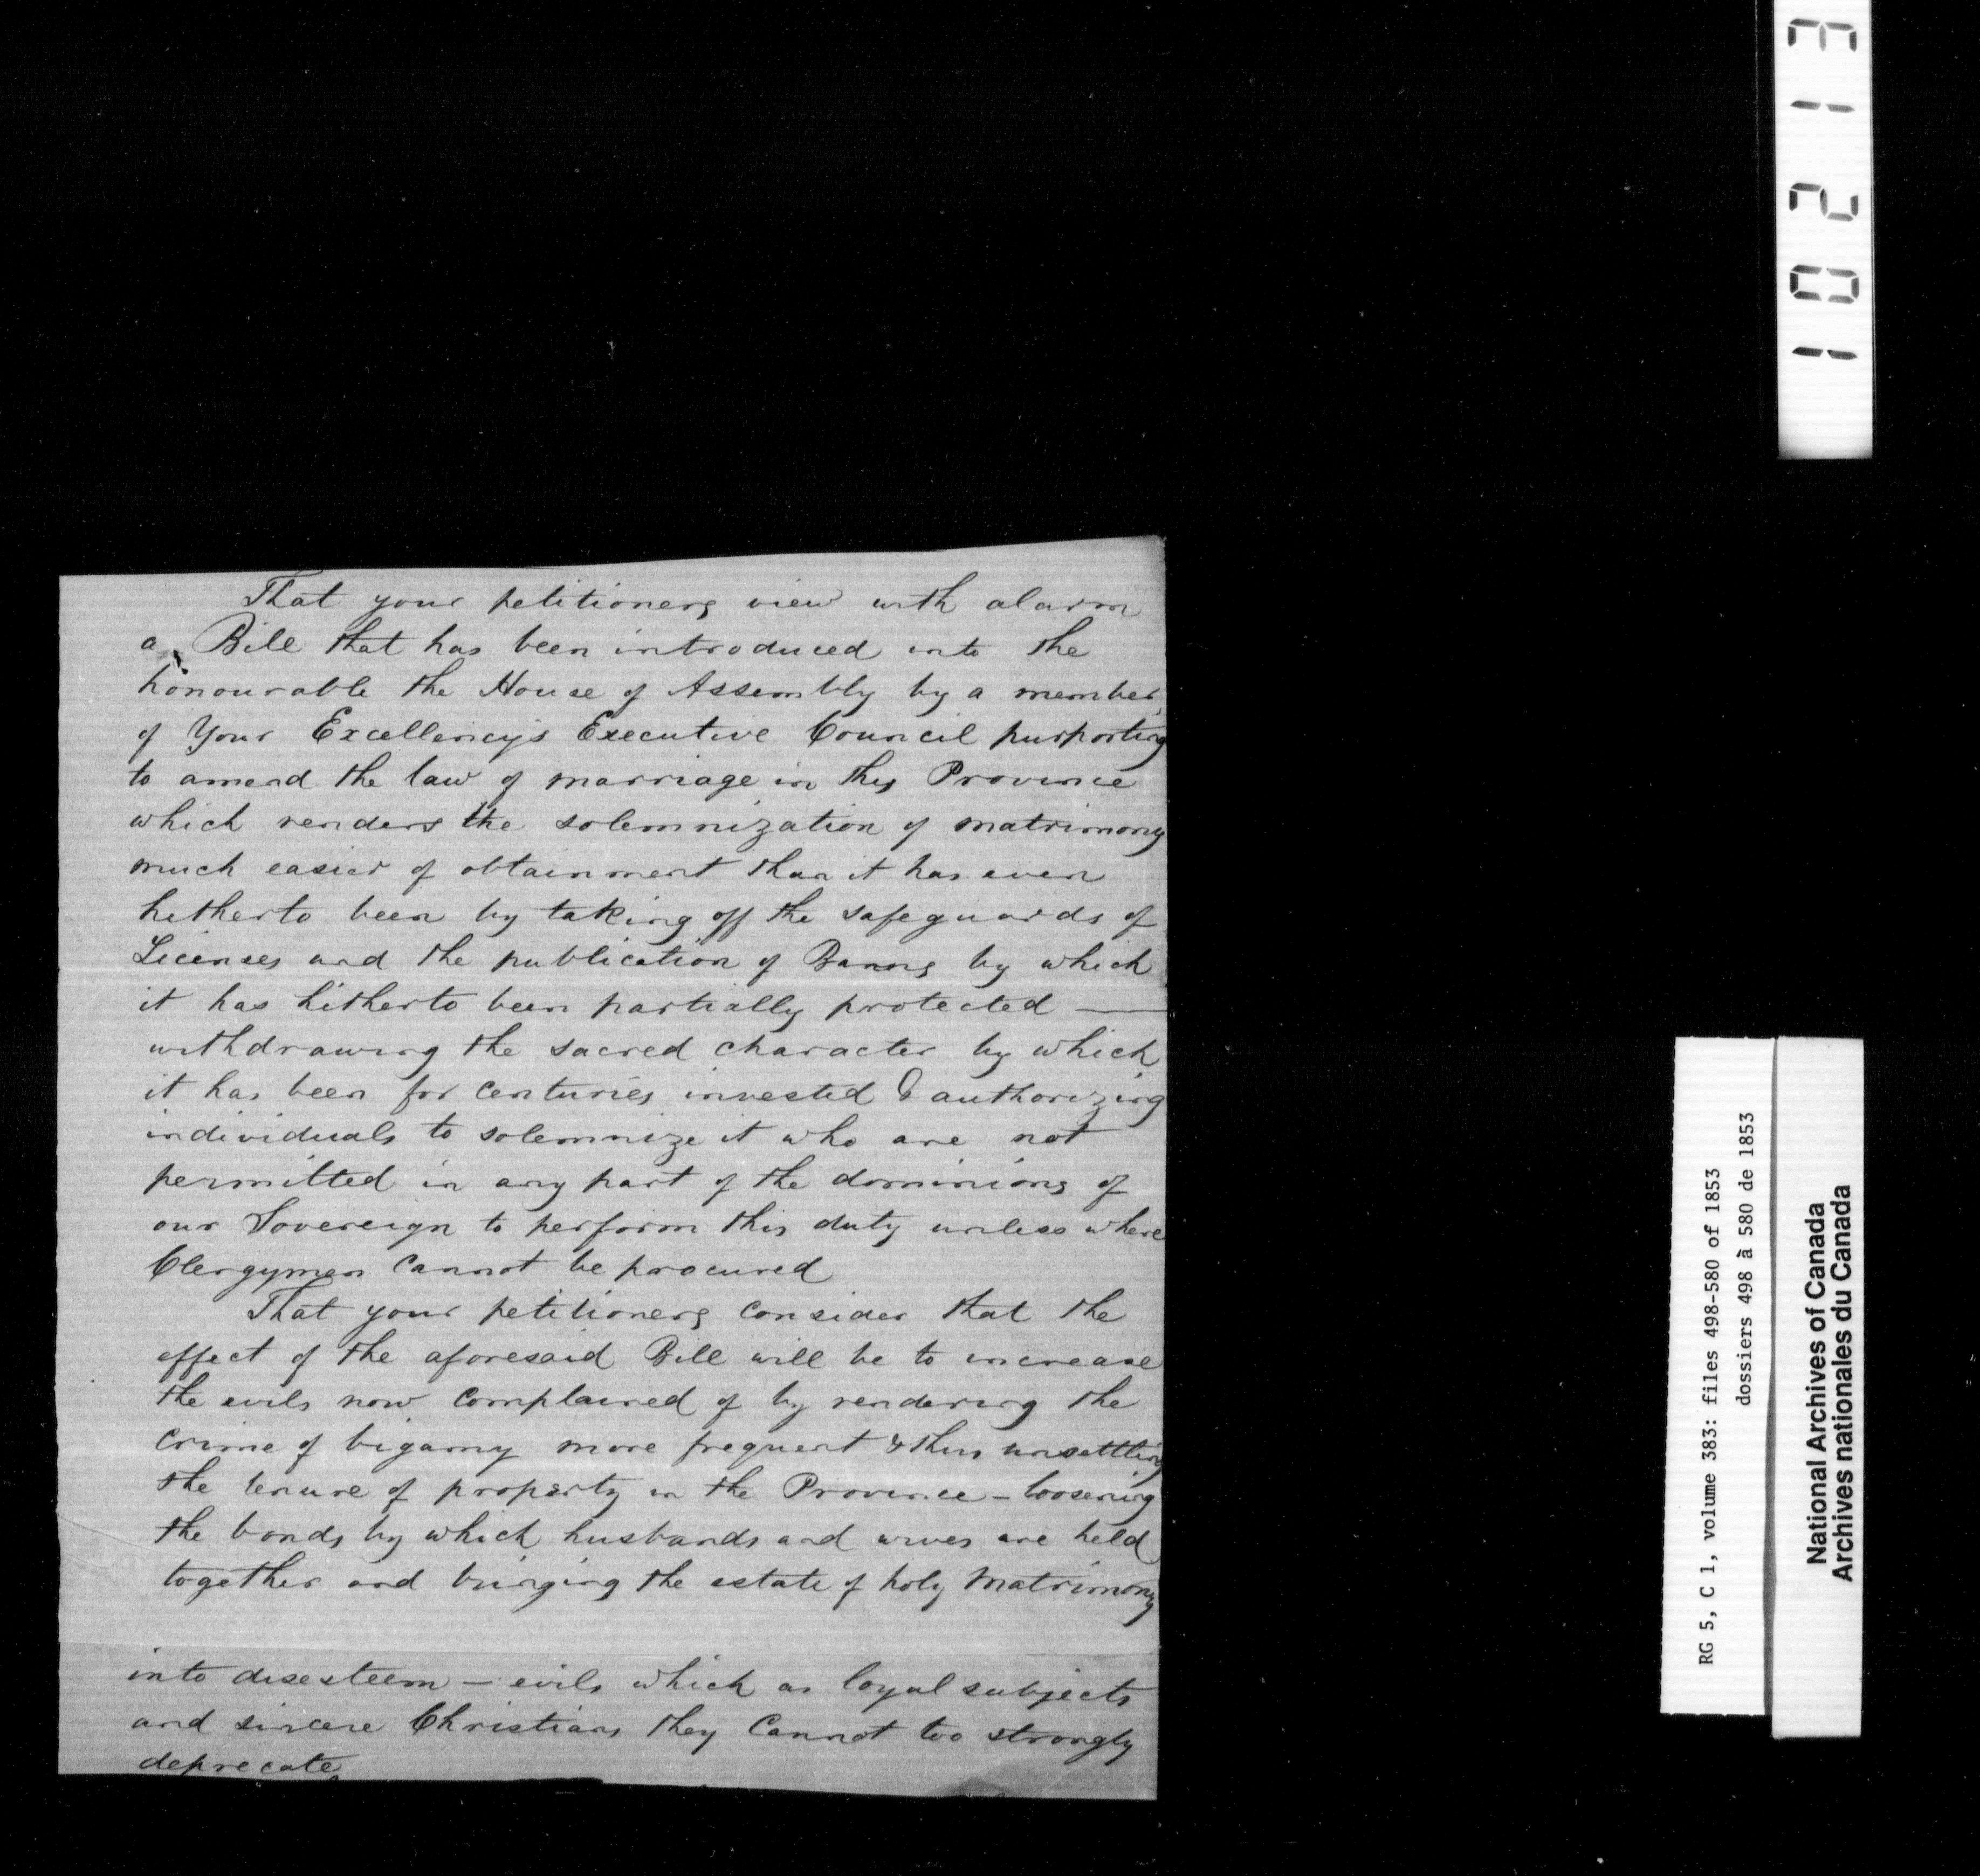 That your petitioners view with alarm
a Bill that has been introduced into the
honourable the House of Assembly by a member
of Your Excellency's Executive Council purporting
to amend the law of marriage in this Province
which renders the solemnization of matrimony
much easier of obtainment than it has even
hitherto been by taking off the safeguards of
Licenses and the publication of Banns by which
it has hitherto been partially protected —
withdrawing the sacred character by which
it has been for centuries invested & authorizing
individuals to solemnize it who are not
permitted in any part of the dominions of
our Sovereign to perform this duty unless where
Clergymen cannot be procured
That your petitioners consider that the
effect of the aforesaid Bill will be to increase
the evils now complained of by rendering the
crime of bigamy more frequent & thus unsettling
the tenure of property in the Province - loosening
the bonds by which husbands and wives are held
together and bringing the estate of holy Matrimony
into disesteem - evils which as loyal subjects
and sincere Christians they cannot too strongly
deprecate
10213
RG 5, C 1, volume 383: files 498-580 of 1853
dossiers 498 à 580 de 1853
National Archives of Canada
Archives nationales du Canada